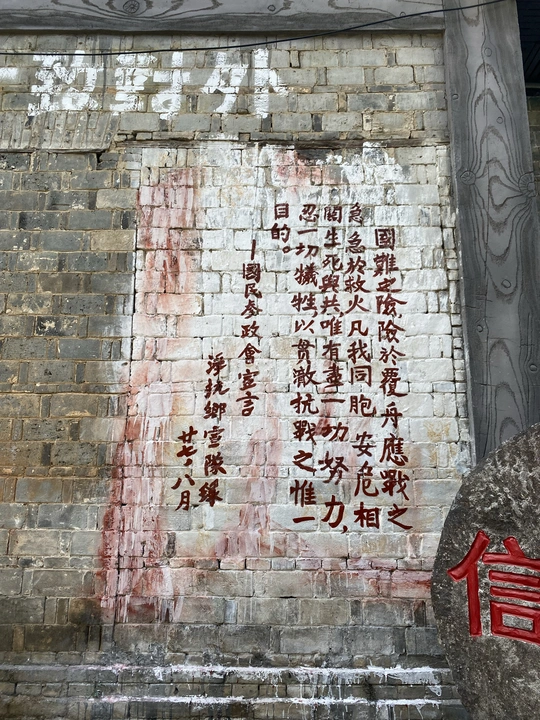 一致對外
國難之險險於覆舟應戰之
急急於救火凡我同胞安危相
關生死與共唯有盡一切努力,
忍一切犧牲,以贯澈抗戰之惟一
目的。
—國民参政會宣言
淨抗鄉宣隊錄
廿七、八月
信